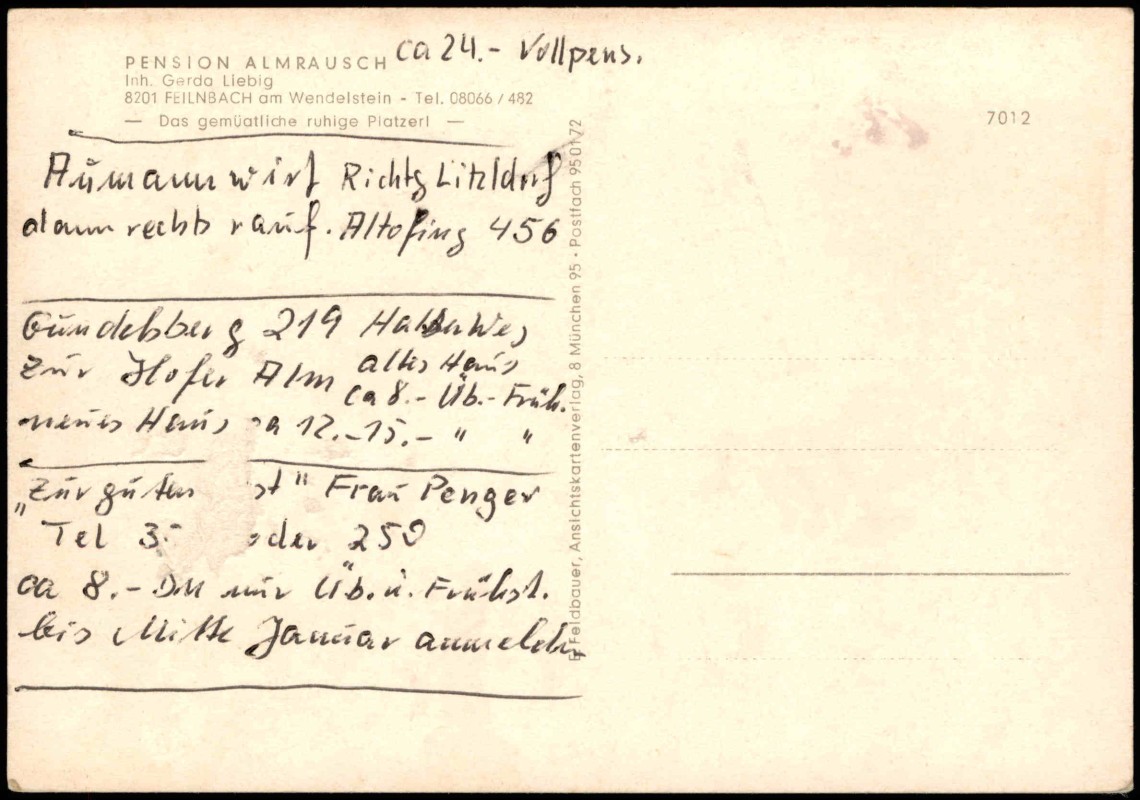 PENSION ALMRAUSCH ca 24.- Vollpens.
Inh. Gerda Liebig
8201 FEILNBACH am Wendelstein - Tel. 08066 / 482
— Das gemüatliche ruhige Platzerl —
7012
Aumann wirt Richtg Litzldorf
dann rechts rauf. Altofing 456
Gundelsberg 219
zur Hofer Alm altes Haus
ca 8.- Üb.- Früh.
neues Haus ca 12.-15.- " "
"Zur guten st" Frau Penger
Tel 3 oder 250
ca 8.- DM nur Üb. u. Frühst.
bis Mitte Januar anmelden
Feldbauer, Ansichtskartenverlag, 8 München 95 · Postfach 950172